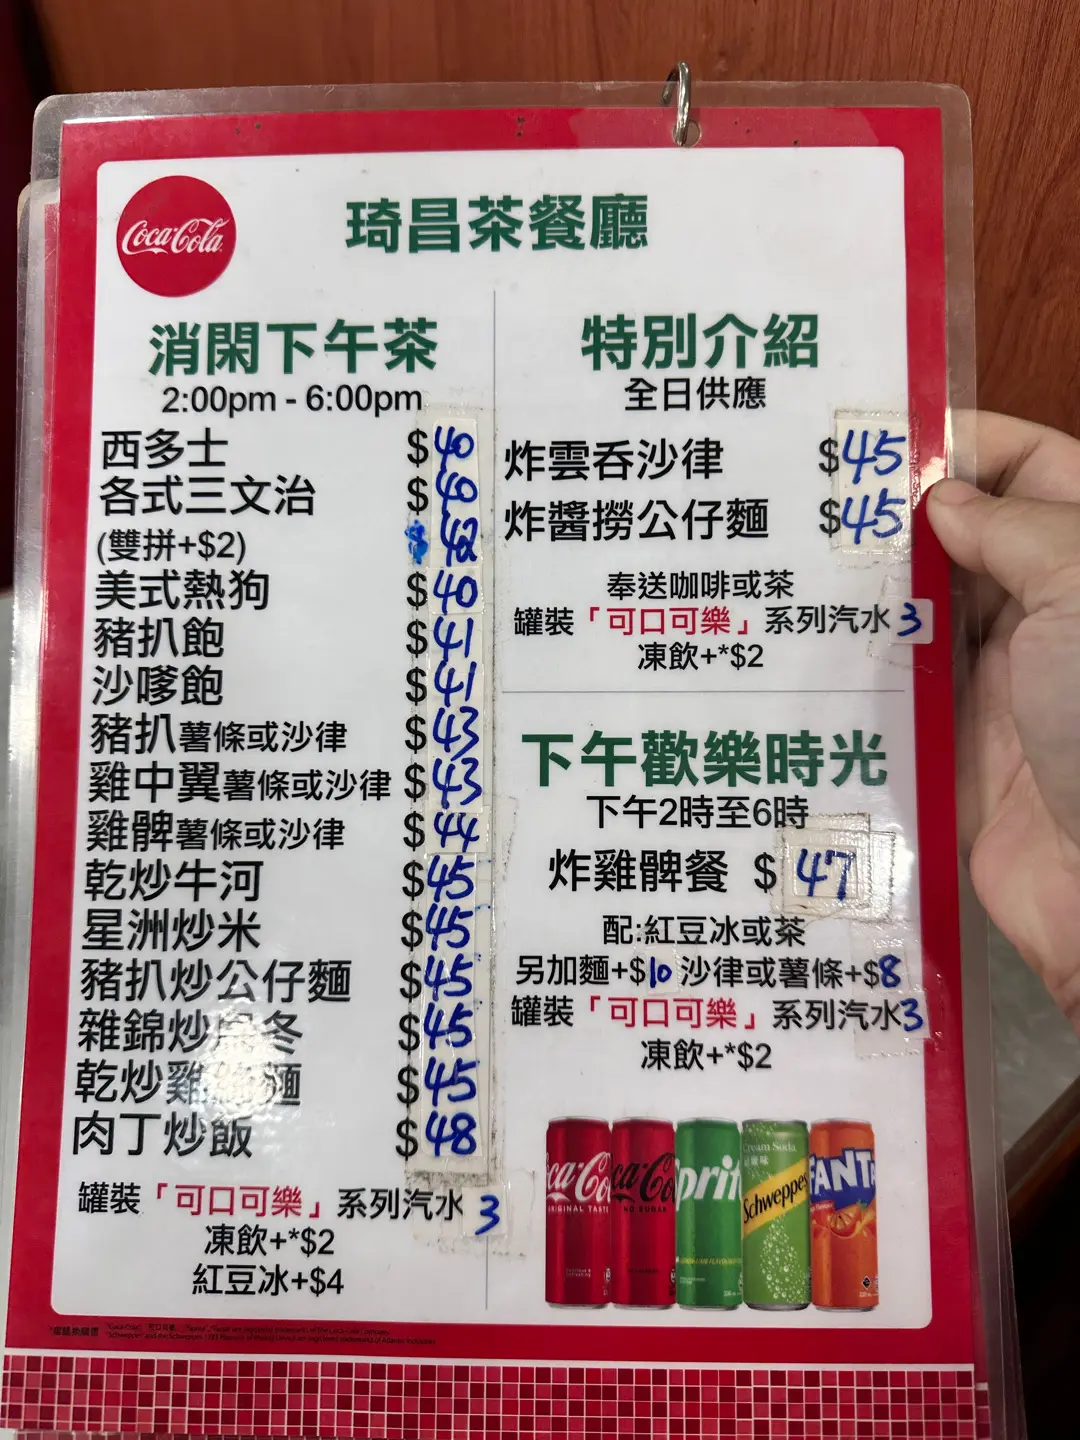 Coca-Cola
琦昌茶餐廳
消閑下午茶
2:00pm - 6:00pm
西多士 $40
各式三文治 $40
(雙拼+$2) $42
美式熱狗 $40
豬扒飽 $41
沙嗲飽 $41
豬扒薯條或沙律 $43
雞中翼薯條或沙律 $43
雞髀薯條或沙律 $44
乾炒牛河 $45
星洲炒米 $45
豬扒炒公仔麵 $45
雜錦炒烏冬 $45
乾炒雞絲麵 $45
肉丁炒飯 $48
罐裝「可口可樂」系列汽水 3
凍飲+*$2
紅豆冰+$4
特別介紹
全日供應
炸雲吞沙律 $45
炸醬撈公仔麵 $45
奉送咖啡或茶
罐裝「可口可樂」系列汽水 3
凍飲+*$2
下午歡樂時光
下午2時至6時
炸雞髀餐 $47
配:紅豆冰或茶
另加麵+$10 沙律或薯條+$8
罐裝「可口可樂」系列汽水3
凍飲+*$2
ca-Co
ORIGINAL TASTE
ca-Co
NO SUGAR
Sprit
Cream Soda
Schweppes
FANTA